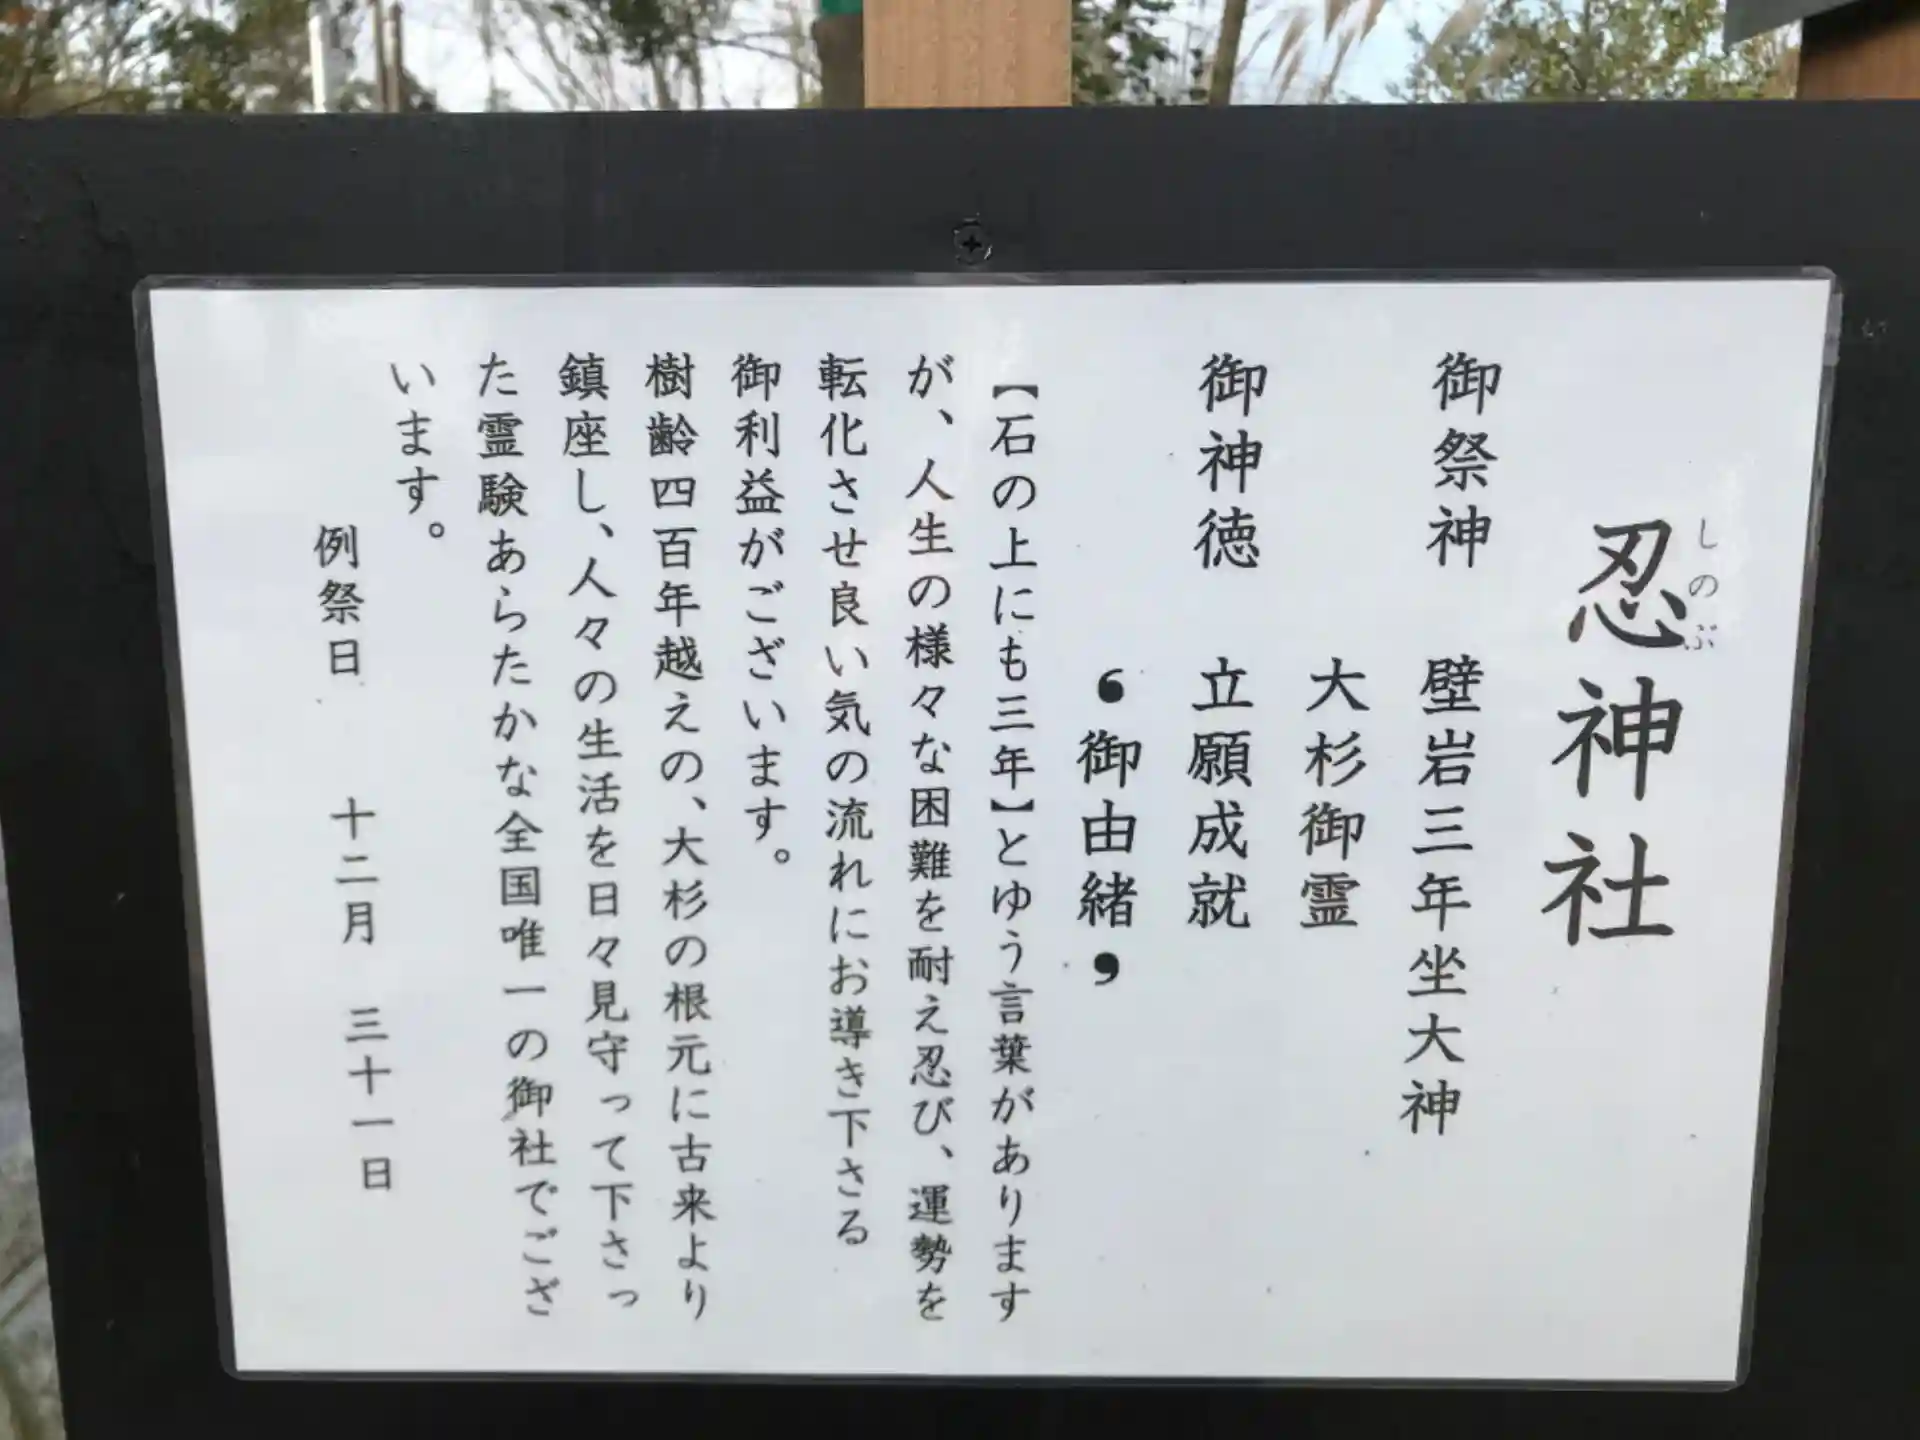 忍神社
しのぶ
御祭神　壁岩三年坐大神
大杉御霊
御神徳　立願成就
❛御由緒❜
【石の上にも三年】とゆう言葉があります
が、人生の様々な困難を耐え忍び、運勢を
転化させ良い気の流れにお導き下さる
御利益がございます。
樹齢四百年越えの、大杉の根元に古来より
鎮座し、人々の生活を日々見守って下さっ
た霊験あらたかな全国唯一の御社でござ
います。
例祭日　十二月　三十一日